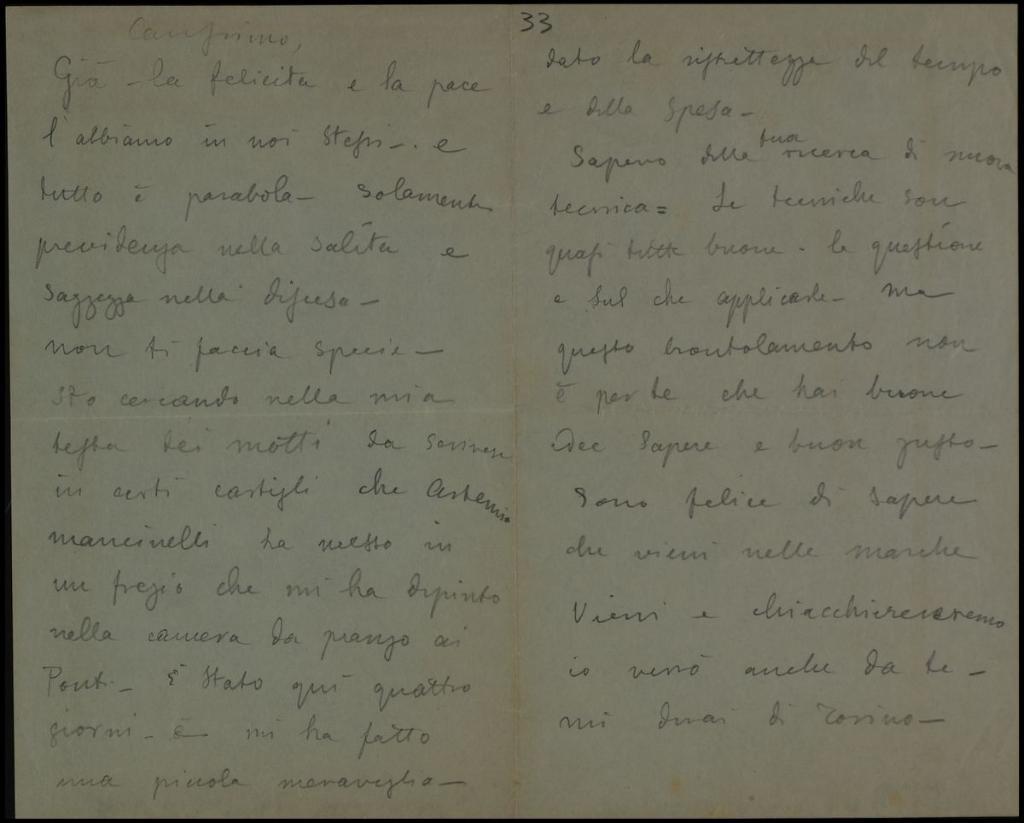 33
Carissimo,
Già - la felicita e la pace
l'abbiamo in noi stessi -. e
tutto è parabola - Solamente
previdenza nella salita e
saggezza nella discesa -
non ti faccia specie -
sto cercando nella mia
testa dei motti da scrivere
in certi cartigli che Artemio
mancinelli ha messo in
un fregio che mi ha dipinto
nella camera da pranzo ai
Ponti - È stato qui quattro
giorni - e mi ha fatto
una piccola meraviglia -
dato la ristrettezza del tempo
e della spesa -
Sapevo della tua ricerca di nuova
tecnica = Le tecniche son
quasi tutte buone - la questione
e sul che applicarle - ma
questo brontolamento non
è per te che hai buone
idee sapere e buon gusto -
Sono felice di sapere
che vieni nelle marche
Vieni e chiacchiereremo
io verrò anche da te -
mi dirai di Torino -